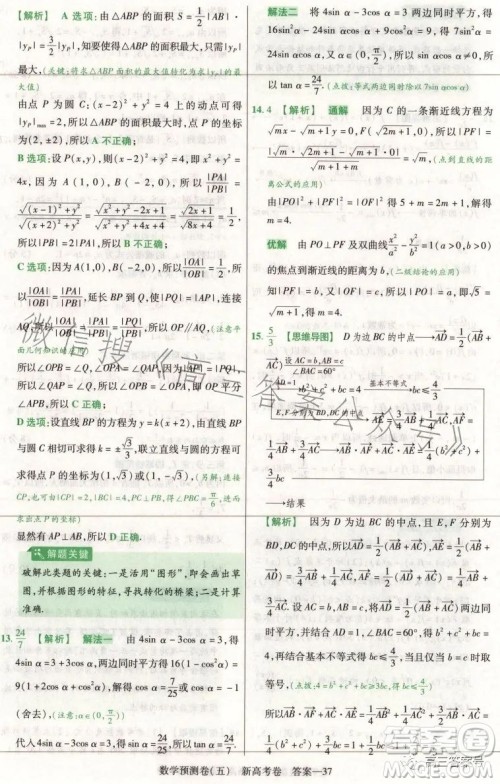 【解析】 A 选项:由△ABP 的面积 S = 1/2 |AB| ·
|y_P| = 3/2 |y_P|,知要使得△ABP 的面积最大,只需|y_P|
最大,(关键:将求△ABP 面积的最大值转化为求|y_P|的最
大值)
由点 P 为圆 C:(x-2)²+y²=4 上的动点可得
|y_P|max=2,所以△ABP 的面积最大时,点 P 的坐标
为(2,±2),所以 A 不正确;
B 选项:设 P(x,y),则 x²+y²=4x,
因为 A(1,0),B(-2,0),所以 |PA|/|PB| =
√((x-1)²+y²)/√((x+2)²+y²) = √(x²+y²-2x+1)/√(x²+y²+4x+4) = √(2x+1)/√(8x+4) = 1/2,
所以|PB|=2|PA|,所以 B 不正确;
C 选项:因为 A(1,0),B(-2,0),所以 |OA|/|OB| = 1/2,
所以 |OA|/|OB| = |PA|/|PB|,延长 BP 到 Q,使|PQ|=|PA|,连接
AQ,所以 |OA|/|OB| = |PQ|/|PB|,所以 OP∥AQ,(注意平
面几何知识的应用)
所以∠OPB=∠Q,∠OPA=∠PAQ,因为|PA|=|PQ|,
所以∠PAQ=∠Q,所以∠OPB=∠OPA,即 OP 平分
∠APB,所以 C 正确;
D 选项:设直线 BP 的方程为 y=k(x+2),由直线 BP
与圆 C 相切可求得 k=±√3/3,联立直线与圆的方程可
求得点 P 的坐标为(1,±√3),(另解:连接 CP,
也可由|CP|=2,|BC|=4,PC⊥PB,得∠PBC=π/6,进而
求出点 P 的坐标)
显然有 AP⊥AB,所以 D 正确.
解题关键
破解此类题的关键:一是活用“图形”,即会画出草
图,并根据图形的特征,寻找转化的桥梁;二是计算
准确.
13. 24/7 【解析】 解法一 由 4sin α-3cos α=3,得
4sin α=3+3cos α,两边同时平方得 16(1-cos²α)=
9(1+2cos α+cos²α),解得 cos α=7/25或 cos α=-1
(舍去),(注意:α∈(0,π/2))
代入 4sin α-3cos α=3,得 sin α=24/25,所以 tan α=24/7.
解法二 将 4sin α-3cos α=3 两边同时平方,得
16sin²α-24sin αcos α=9-9cos²α=9sin²α,得
7sin²α=24sin αcos α,又 α∈(0,π/2),所以 sin α≠0,
tan α=24/7.(点拨:等式两边同时除以 7sin αcos α)
14. 4 【解析】 通解 因为 C 的一条渐近线方程为
√m x-√(m+1) y=0,F(√(2m+1),0),所以|PF|=
|√m·√(2m+1)-√(m+1)·0|/√(m+1+m) = √m,(点到直线的距
离公式的应用)
由|PO|²+|PF|²=|OF|²,得(√5)²+m=2m+1,
所以 m=4.
优解 由 PO⊥PF 及双曲线x²/a²-y²/b²=1(a>0,b>0)
的焦点到渐近线的距离为 b,(二级结论的应用)
知|PF|=b,又|OF|=c,所以|PO|=a,即√5=
√(m+1),所以 m=4.
15. 5/3 【思维导图】 D 为边 BC 的中点→AD=1/2(AB+
AC) 设AC=b,AB=c,∠BAC=60° 4=b²/4+c²/4+1/2 bc=4 基本不等式→bc≤4/3
E,F 分别为 BD,DC 的中点→AE=3/4AB+1/4AC,AF=1/4AB+3/4AC
→结果
【解析】 因为 D 为边 BC 的中点,且 E,F 分别为
BD,DC 的中点,所以AD=1/2(AB+AC),AE=1/2(AB
+AD)=3/4AB+1/4AC,AF=1/2(AD+AC)=1/4AB+
3/4AC.设 AC=b,AB=c,由AD=1/2(AB+AC),
再结合基本不等式得 bc≤4/3,当且仅当 b=c 时取
等号,
数学预测卷(五) 新高考卷 答案—37
微信搜《高三答案公众号》